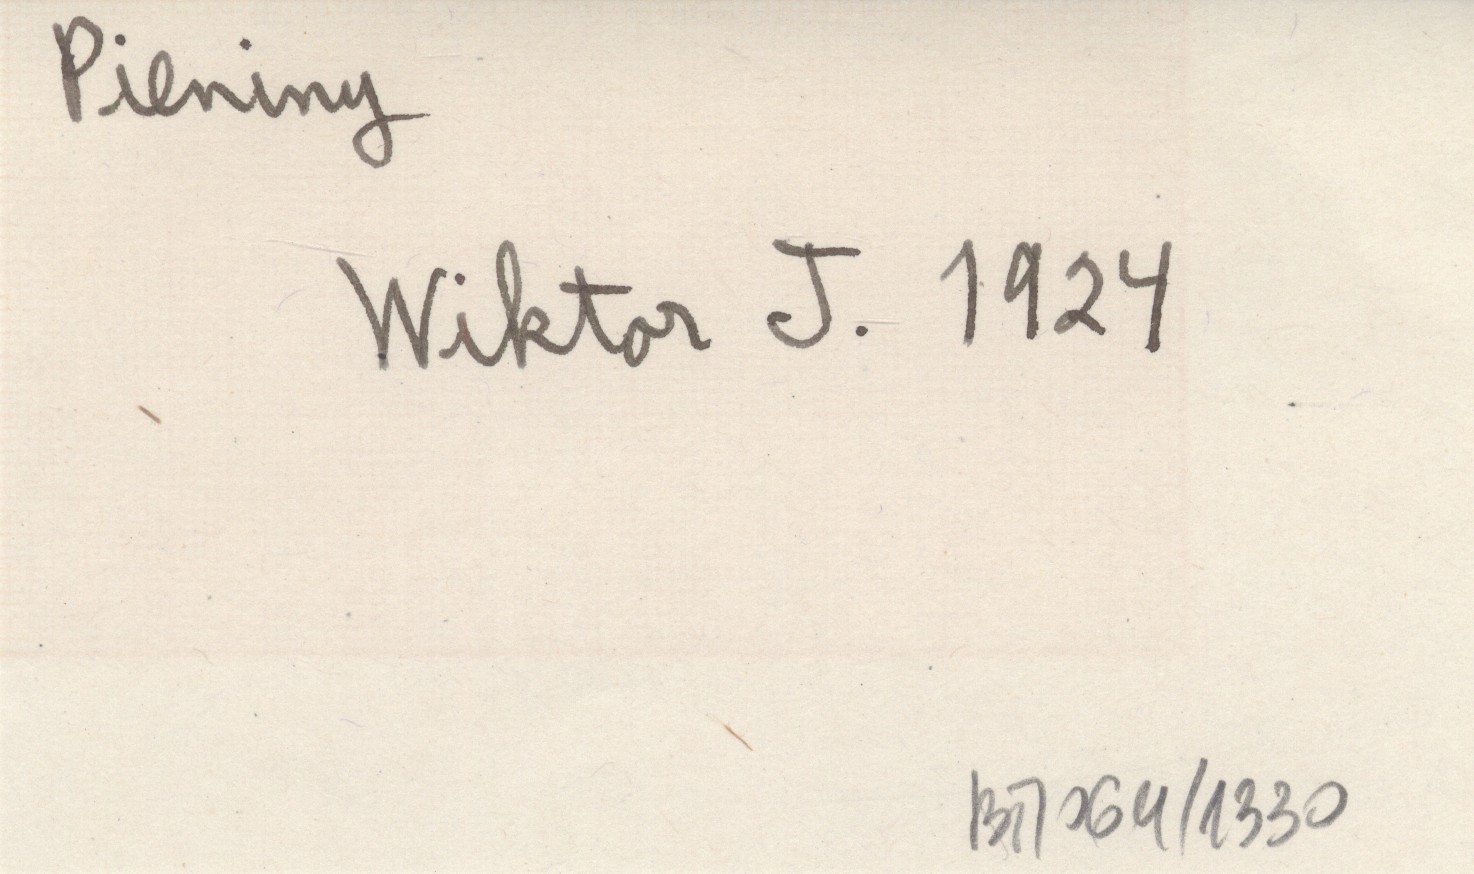 Pieniny
Wiktor J. 1924
064/1330